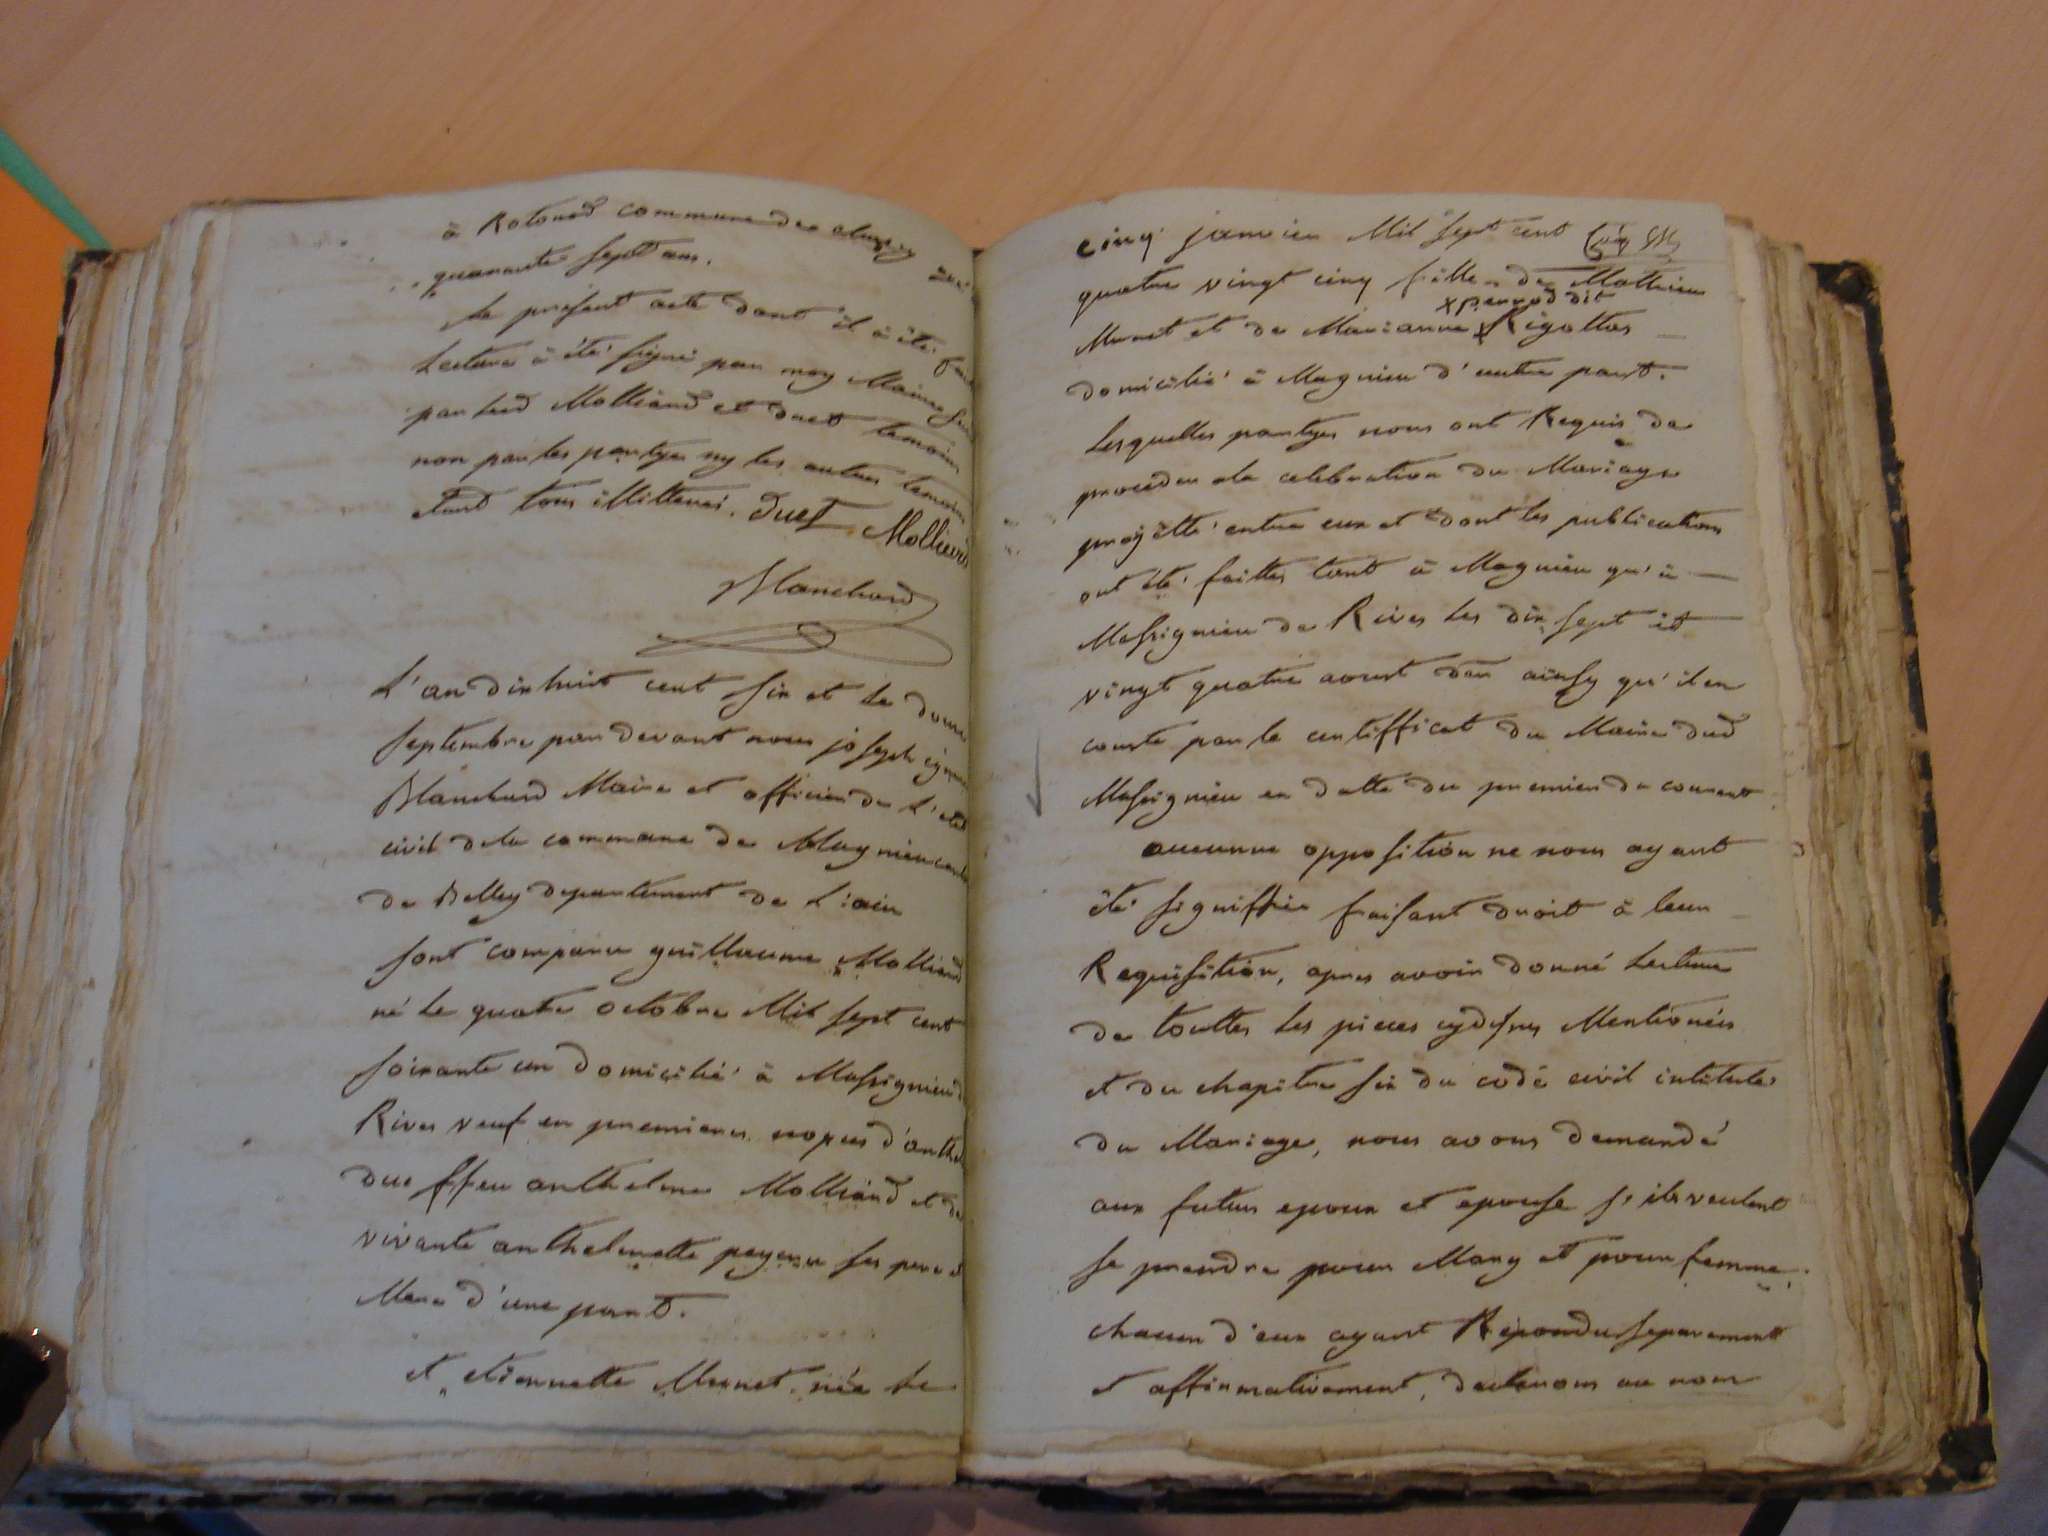 à Rotoned commune des
quarante sept ans.
Le present acte dont il à été
Lecture à été signé par moy Maire
par led Molliand et duet temoins
non par les partyes ny les autres temoins
etand tous illitteres. Duet Molliand
Blanchard
L'an dix huit cent six et le douze
septembre par devant nous joseph
Blanchard Maire et officier de L'etat
civil de la commune de Magnieu
de Belley departement de L'ain
sont comparu guillaume Molliand
né Le quatre octobre Mil sept cent
soixante un domicilié à Massignieu d
Rives veuf en premieres nopces d'anthel
duc ffeu anthelme Molliand et de
vivante anthelmette peyson ses pere et
Mere d'une part.
et etiennette Munet née Le
cinq janvier Mil sept cent
quatre vingt cinq fille de Mathieu
x perrod dit
Munet et de Marianne x Rigottos
domicilié à Magnieu d'autre part.
Lesquelles partyes nous ont Requis de
proceder ala celebration du Mariage
projetté entre eux et dont les publications
ont été faittes tant à Magnieu qu'à
Massignieu de Rives Les dix sept et
vingt quatre aoust der ainsy qu'il en
conste par le certifficat du Maire dud
Massignieu en datte du premier du courant
aucunne opposition ne nous ayant
été signiffiée faisant droit à leur
Requisition, apres avoir donné Lecture
de touttes Les pieces cydessus Mentionées
et du chapitre six du code civil intitulé
du Mariage, nous avons demandé
aux futurs epoux et epouse s'ils veulent
se prendre pour Mary et pour femme,
chacun d'eux ayant Repondu separement
et affirmativement, declarons au nom